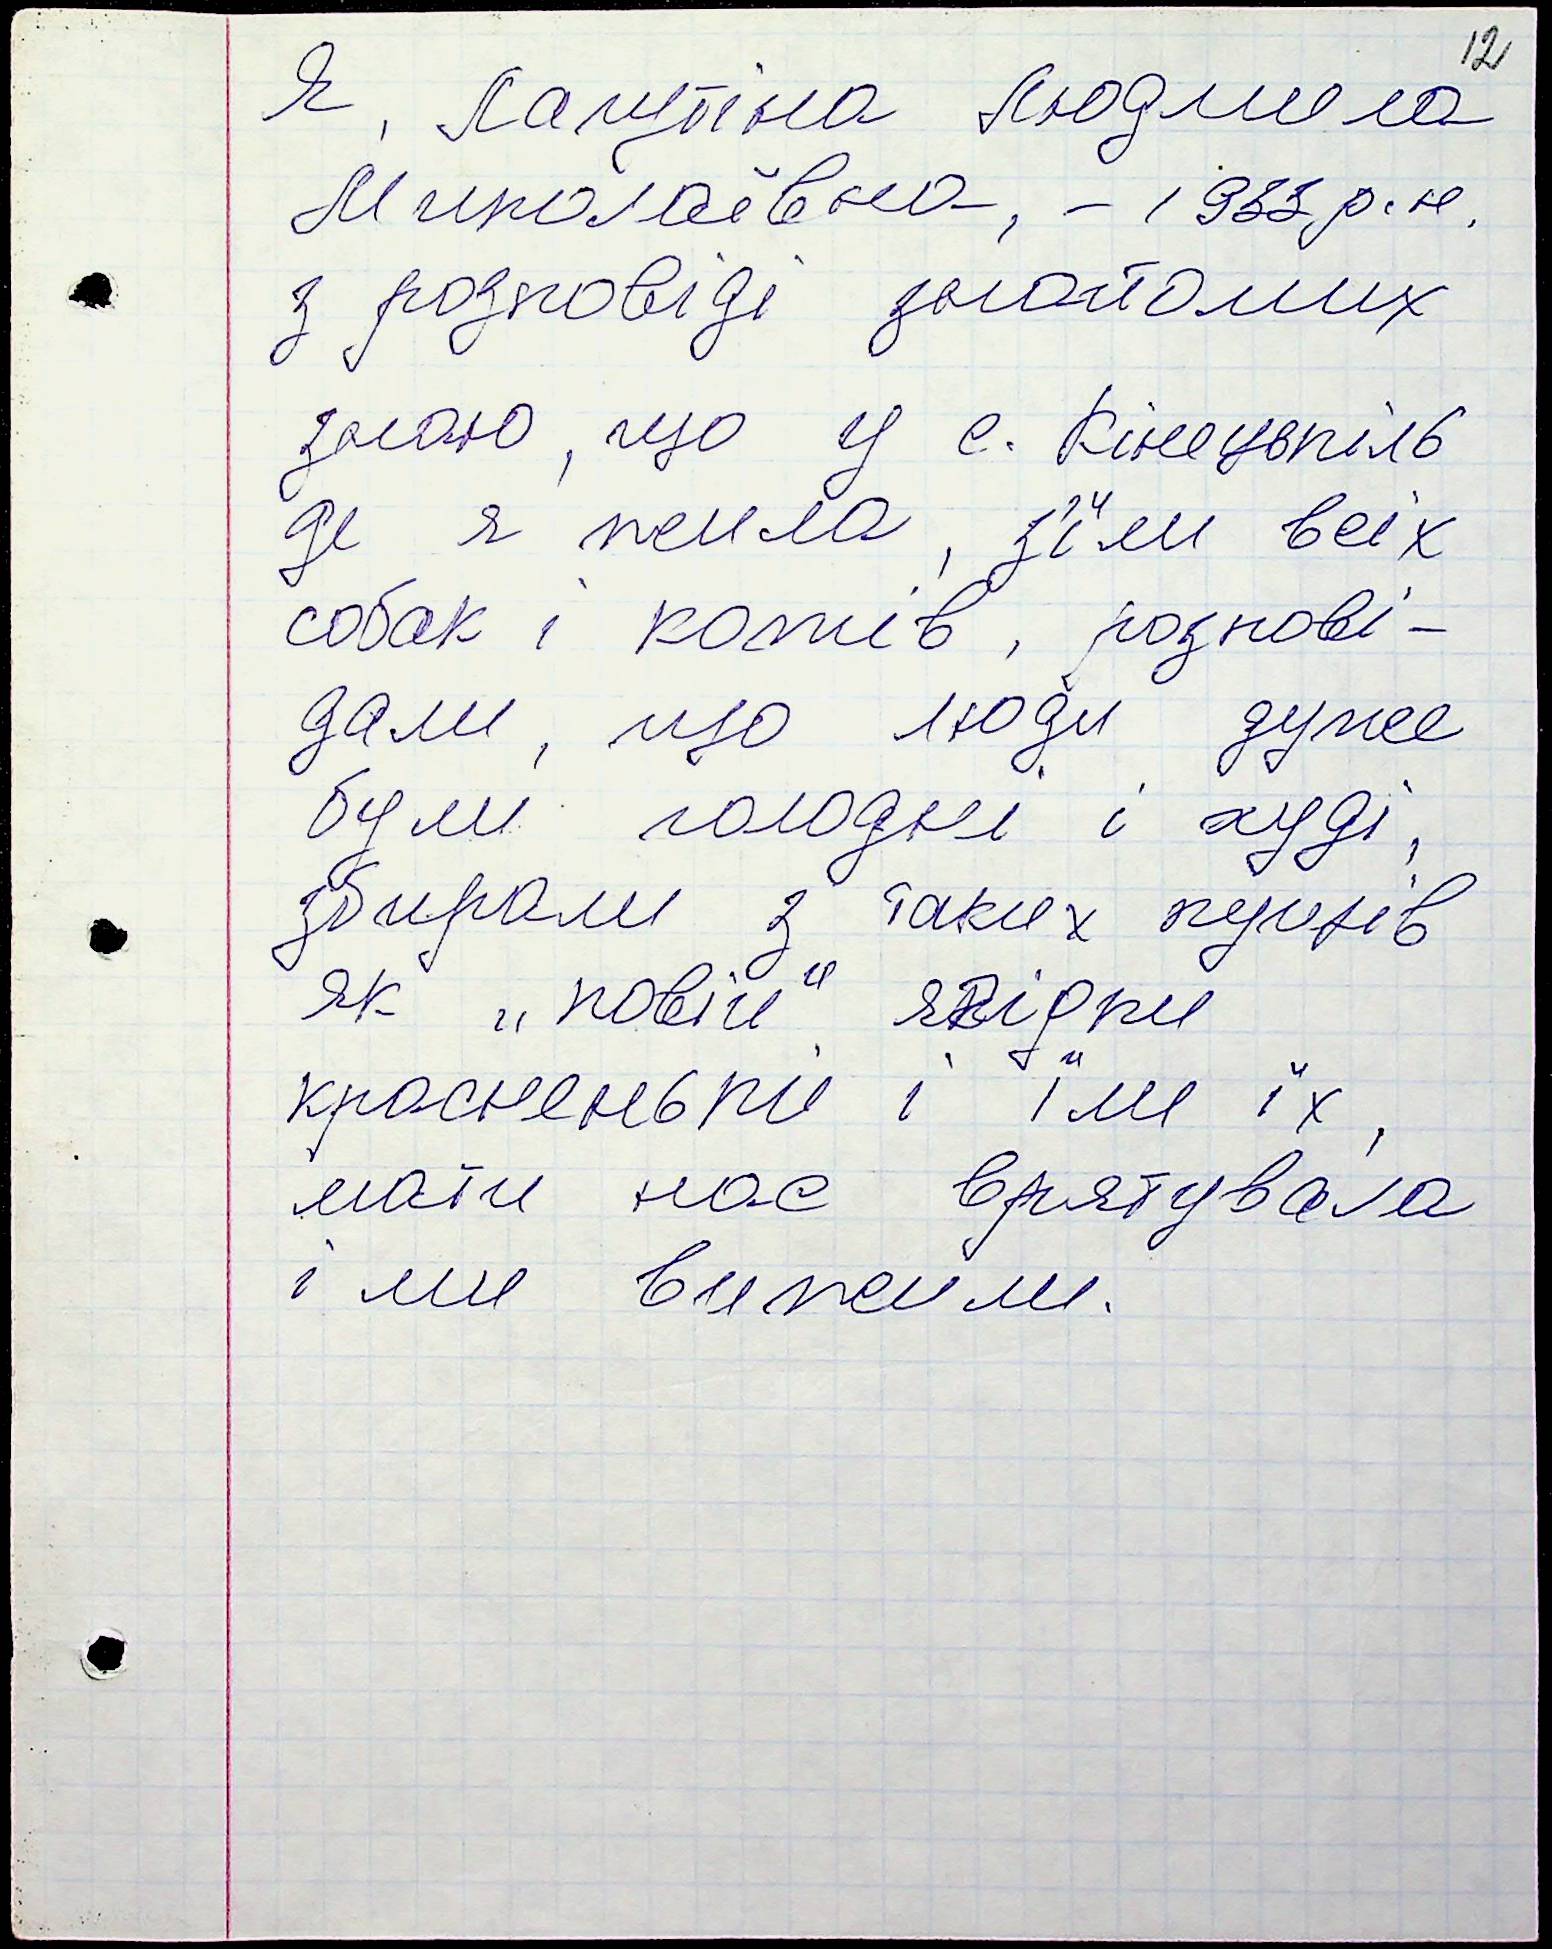 12
Я, Лащутіна Людмила
Миколаївна, - 1933 р.н.
з розповіді знайомих
знаю, що у с. Кінецьпіль
де я жила, зїли всіх
собак і котів, розпові-
дали, що люди дуже
були голодні і худі,
збирали з таких кущів
як „повій" ягідки
красненькі і їли їх,
мати нас врятувала
і ми вижили.